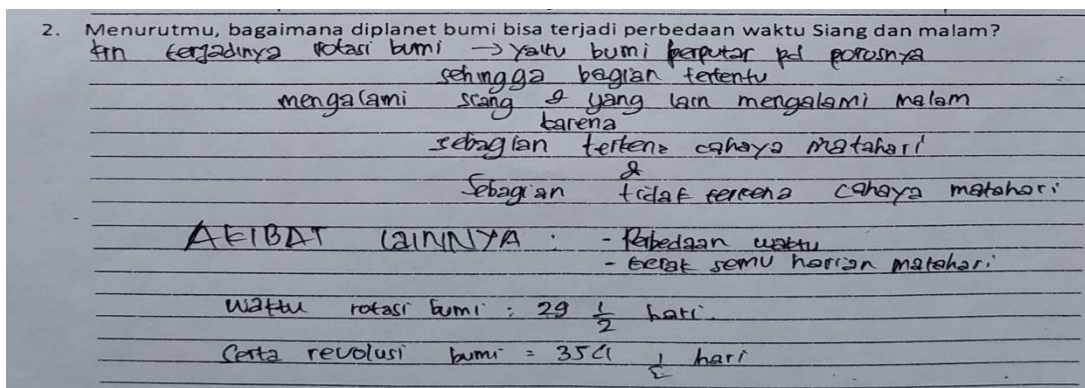 2. Menurutmu, bagaimana diplanet bumi bisa terjadi perbedaan waktu Siang dan malam?
krn terjadinya rotasi bumi → yaitu bumi berputar pd porosnya
sehingga bagian tertentu
mengalami siang & yang lain mengalami malam
karena
sebagian terkena cahaya matahari
&
Sebagian tidak terkena cahaya matahari
AKIBAT LAINNYA : - Perbedaan waktu
- Gerak semu harian matahari
Waktu rotasi bumi : 29 1/2 hari.
Serta revolusi bumi = 354 1/2 hari